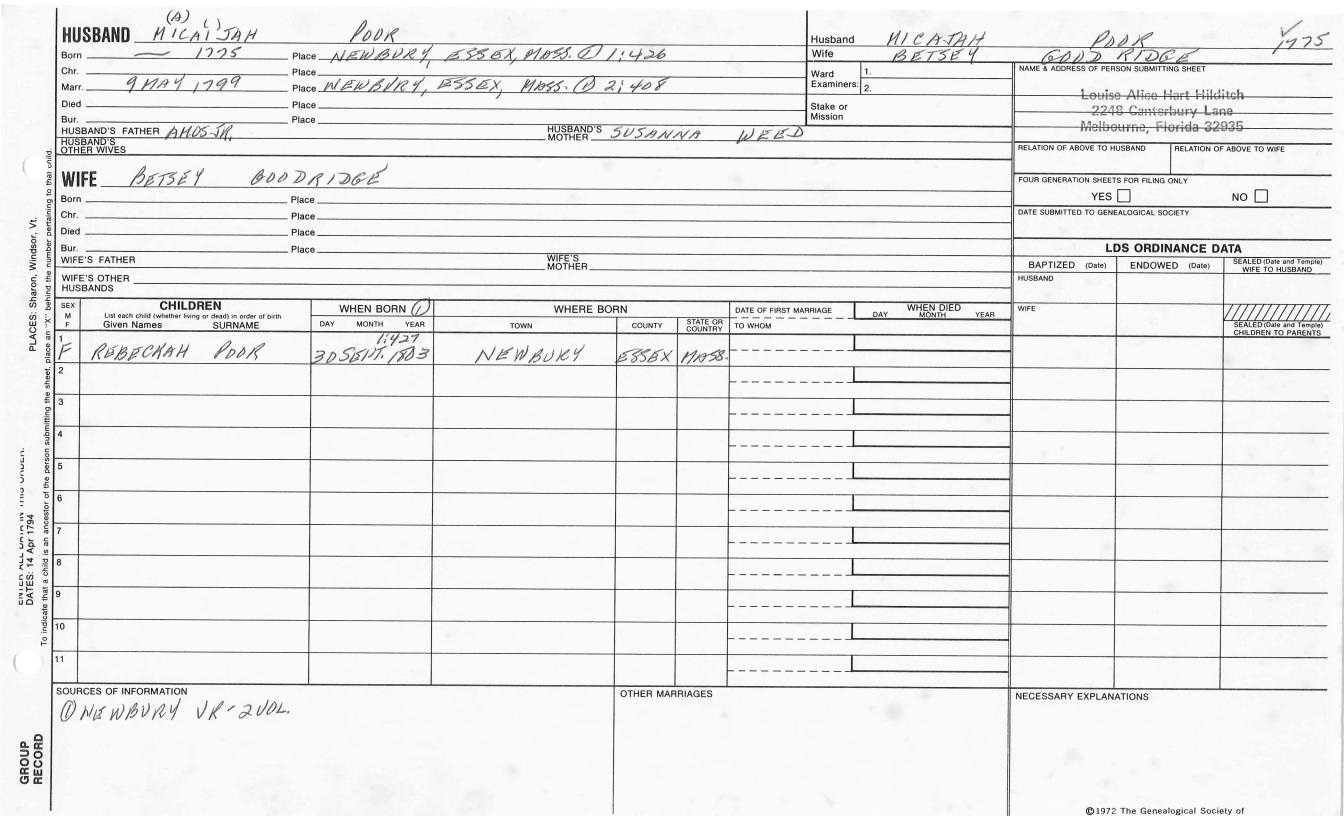 (A) ( )
HUSBAND MICAIJAH POOR
Born — 1775 Place NEWBURY, ESSEX, MASS. ① 1:426
Chr. Place
Marr. 9 MAY 1799 Place NEWBURY, ESSEX, MASS. ① 2:408
Died Place
Bur. Place
HUSBAND'S FATHER AMOS JR. HUSBAND'S MOTHER SUSANNA WEED
HUSBAND'S OTHER WIVES
Husband MICAJAH POOR √1775
Wife BETSEY GOODRIDGE
Ward Examiners: 1.
2.
Stake or Mission
NAME & ADDRESS OF PERSON SUBMITTING SHEET
Louise Alice Hart Hilditch
2248 Canterbury Lane
Melbourne, Florida 32935
RELATION OF ABOVE TO HUSBAND RELATION OF ABOVE TO WIFE
FOUR GENERATION SHEETS FOR FILING ONLY
YES NO
DATE SUBMITTED TO GENEALOGICAL SOCIETY
WIFE BETSEY GOODRIDGE
Born Place
Chr. Place
Died Place
Bur. Place
WIFE'S FATHER WIFE'S MOTHER
WIFE'S OTHER HUSBANDS
LDS ORDINANCE DATA
BAPTIZED (Date) ENDOWED (Date) SEALED (Date and Temple) WIFE TO HUSBAND
HUSBAND
WIFE
SEALED (Date and Temple) CHILDREN TO PARENTS
SEX M F
CHILDREN
List each child (whether living or dead) in order of birth
Given Names SURNAME
WHEN BORN ①
DAY MONTH YEAR
WHERE BORN
TOWN COUNTY STATE OR COUNTRY
DATE OF FIRST MARRIAGE
TO WHOM
WHEN DIED
DAY MONTH YEAR
1:427
1 F REBECKAH POOR 30 SEPT. 1803 NEWBURY ESSEX MASS.
2
3
4
5
6
7
8
9
10
11
SOURCES OF INFORMATION
① NEWBURY VR - 2 VOL.
OTHER MARRIAGES
NECESSARY EXPLANATIONS
©1972 The Genealogical Society of
GROUP RECORD
ENTER ALL DATA IN THIS ORDER:
DATES: 14 Apr 1794
PLACES: Sharon, Windsor, Vt.
To indicate that a child is an ancestor of the person submitting the sheet, place an "X" behind the number pertaining to that child.